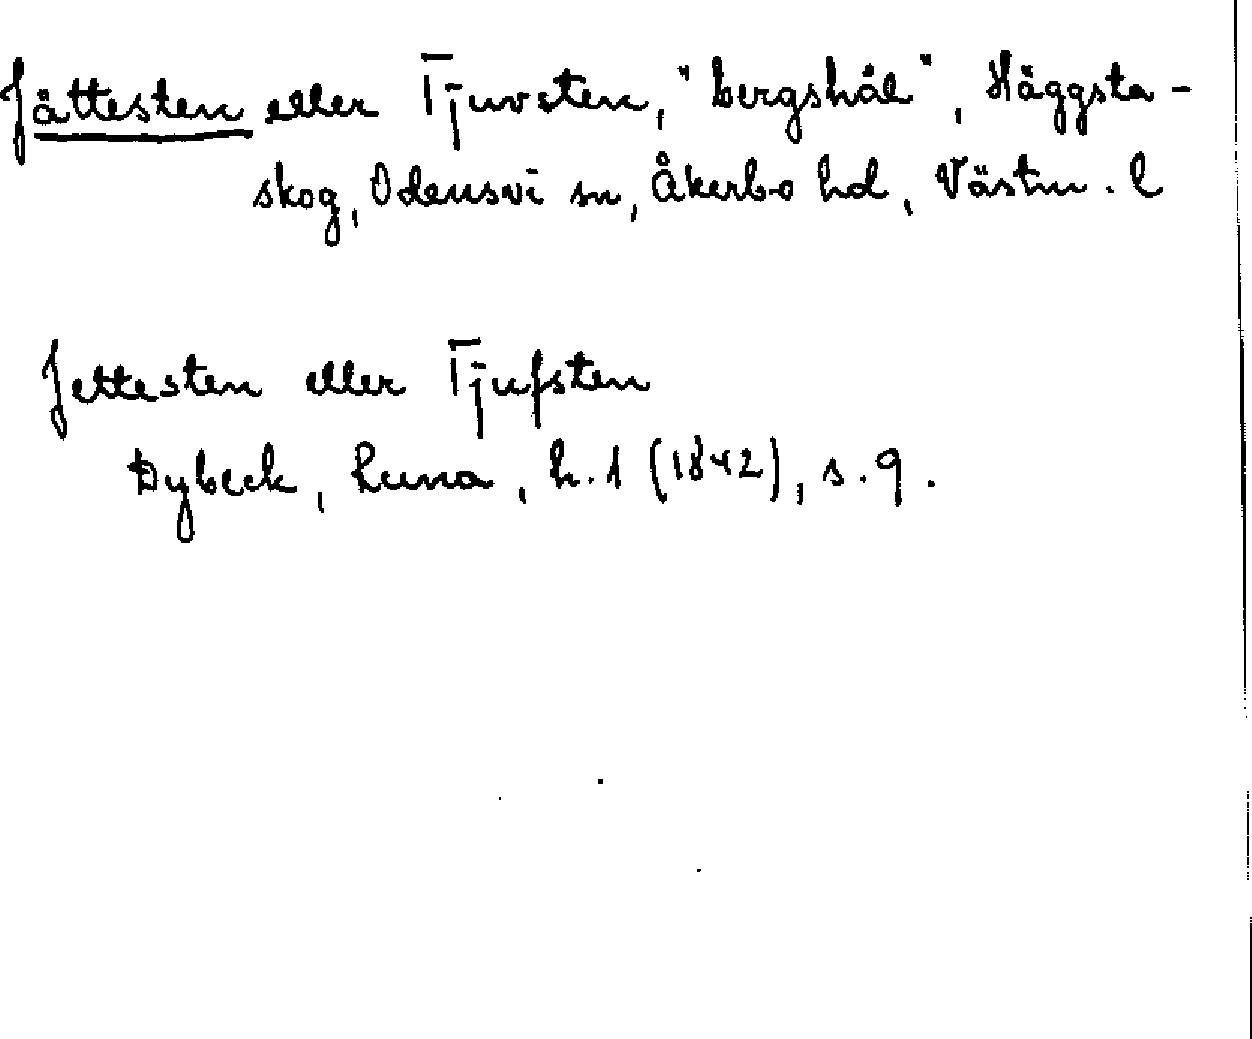 Jättesten eller Tjuvsten, "bergshål", Häggsta-
skog, Odensvi sn, Åkerbo hd, Västm. l
Jettesten eller Tjufsten
Dybeck, Runa, h. 1 (1842), s. 9.